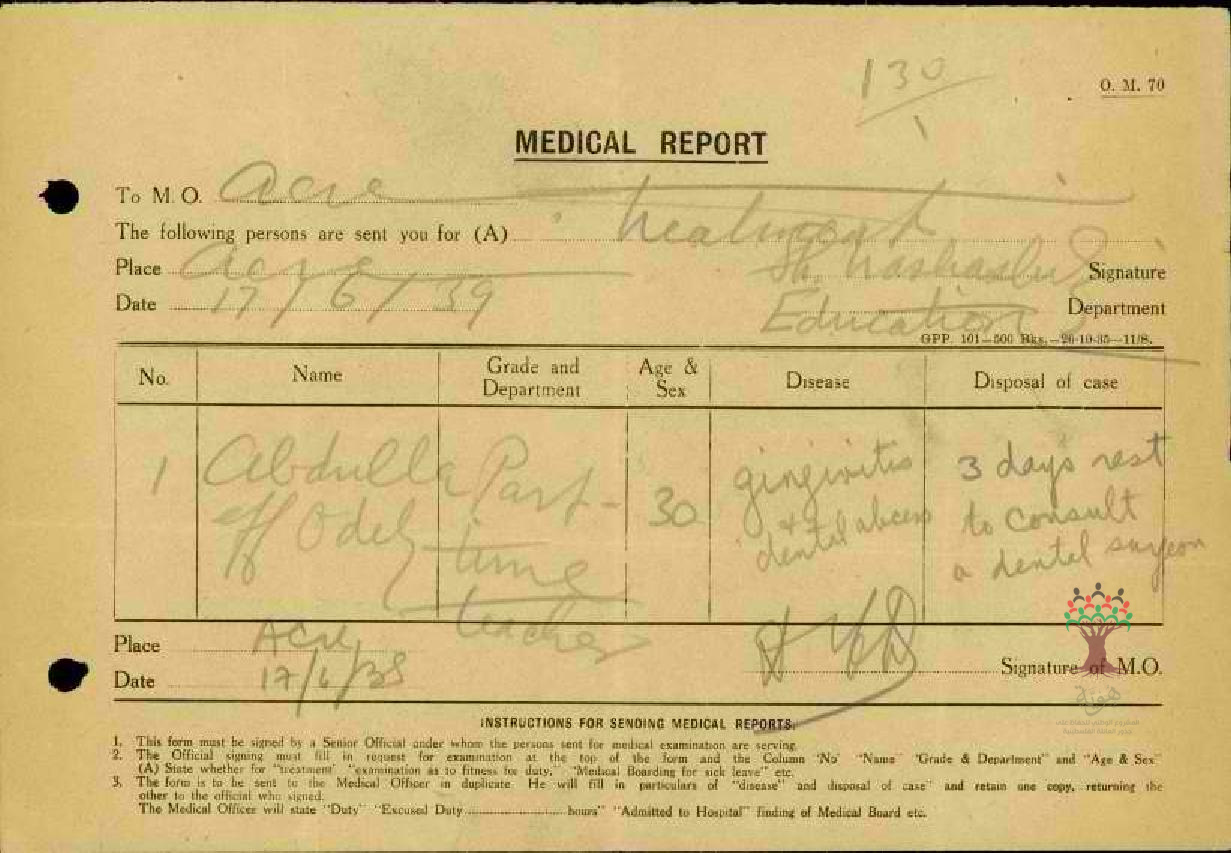 130
1
O. M. 70
MEDICAL REPORT
To M. O. Acre
The following persons are sent you for (A) treatment
Place Acre Signature
Date 17/6/39 Education Department
GPP. 101—500 Bks.—26-10-35—11/8.
No. Name Grade and Department Age & Sex Disease Disposal of case
1 Abdulla Part- 30 gingivitis 3 days rest
Eff Odeh time & dental abcess to consult
teacher a dental surgeon
Place Acre
Date 17/6/38 Signature of M.O.
INSTRUCTIONS FOR SENDING MEDICAL REPORTS.
1. This form must be signed by a Senior Official under whom the persons sent for medical examination are serving.
2. The Official signing must fill in request for examination at the top of the form and the Column "No" "Name" "Grade & Department" and "Age & Sex"
(A) State whether for "treatment" "examination as to fitness for duty," "Medical Boarding for sick leave" etc.
3. The form is to be sent to the Medical Officer in duplicate. He will fill in particulars of "disease" and disposal of case" and retain one copy, returning the
other to the official who signed.
The Medical Officer will state "Duty" "Excused Duty hours" "Admitted to Hospital" finding of Medical Board etc.